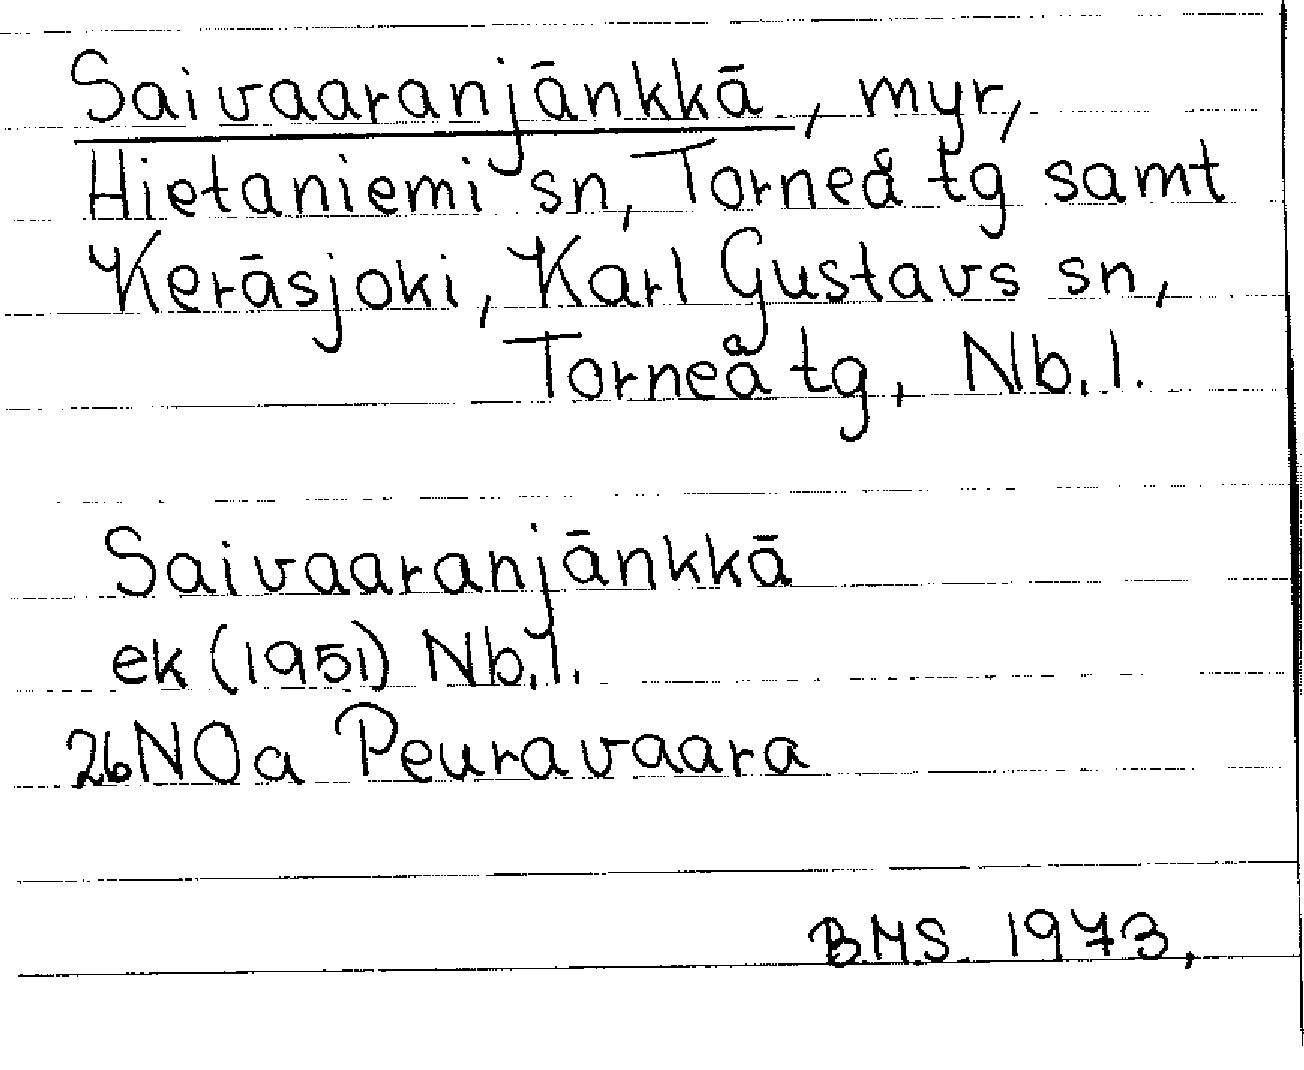 Saivaaranjänkkä, myr,
Hietaniemi sn, Torneå tg samt
Keräsjoki, Karl Gustavs sn,
Torneå tg, Nb.l.
Saivaaranjänkkä
ek (1951) Nb.l.
26NOa Peuravaara
BMS 1973,